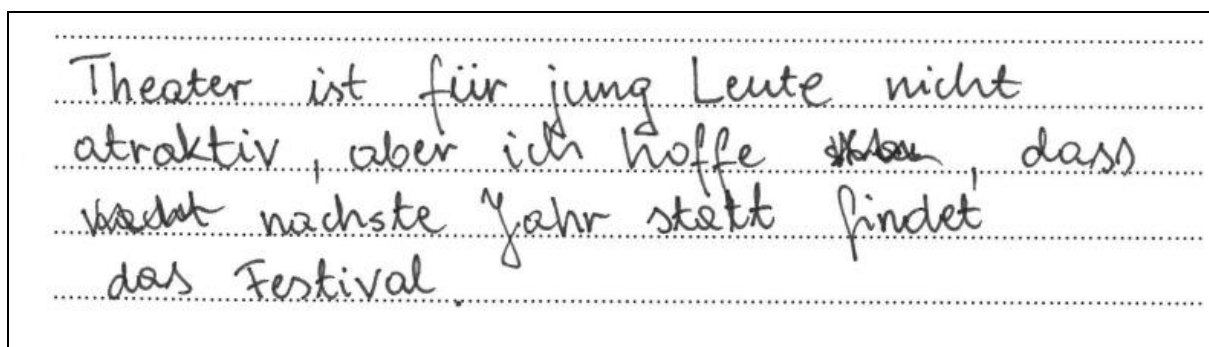 Theater ist für jung Leute nicht
atraktiv, aber ich hoffe , dass
nachste Jahr statt findet
das Festival.